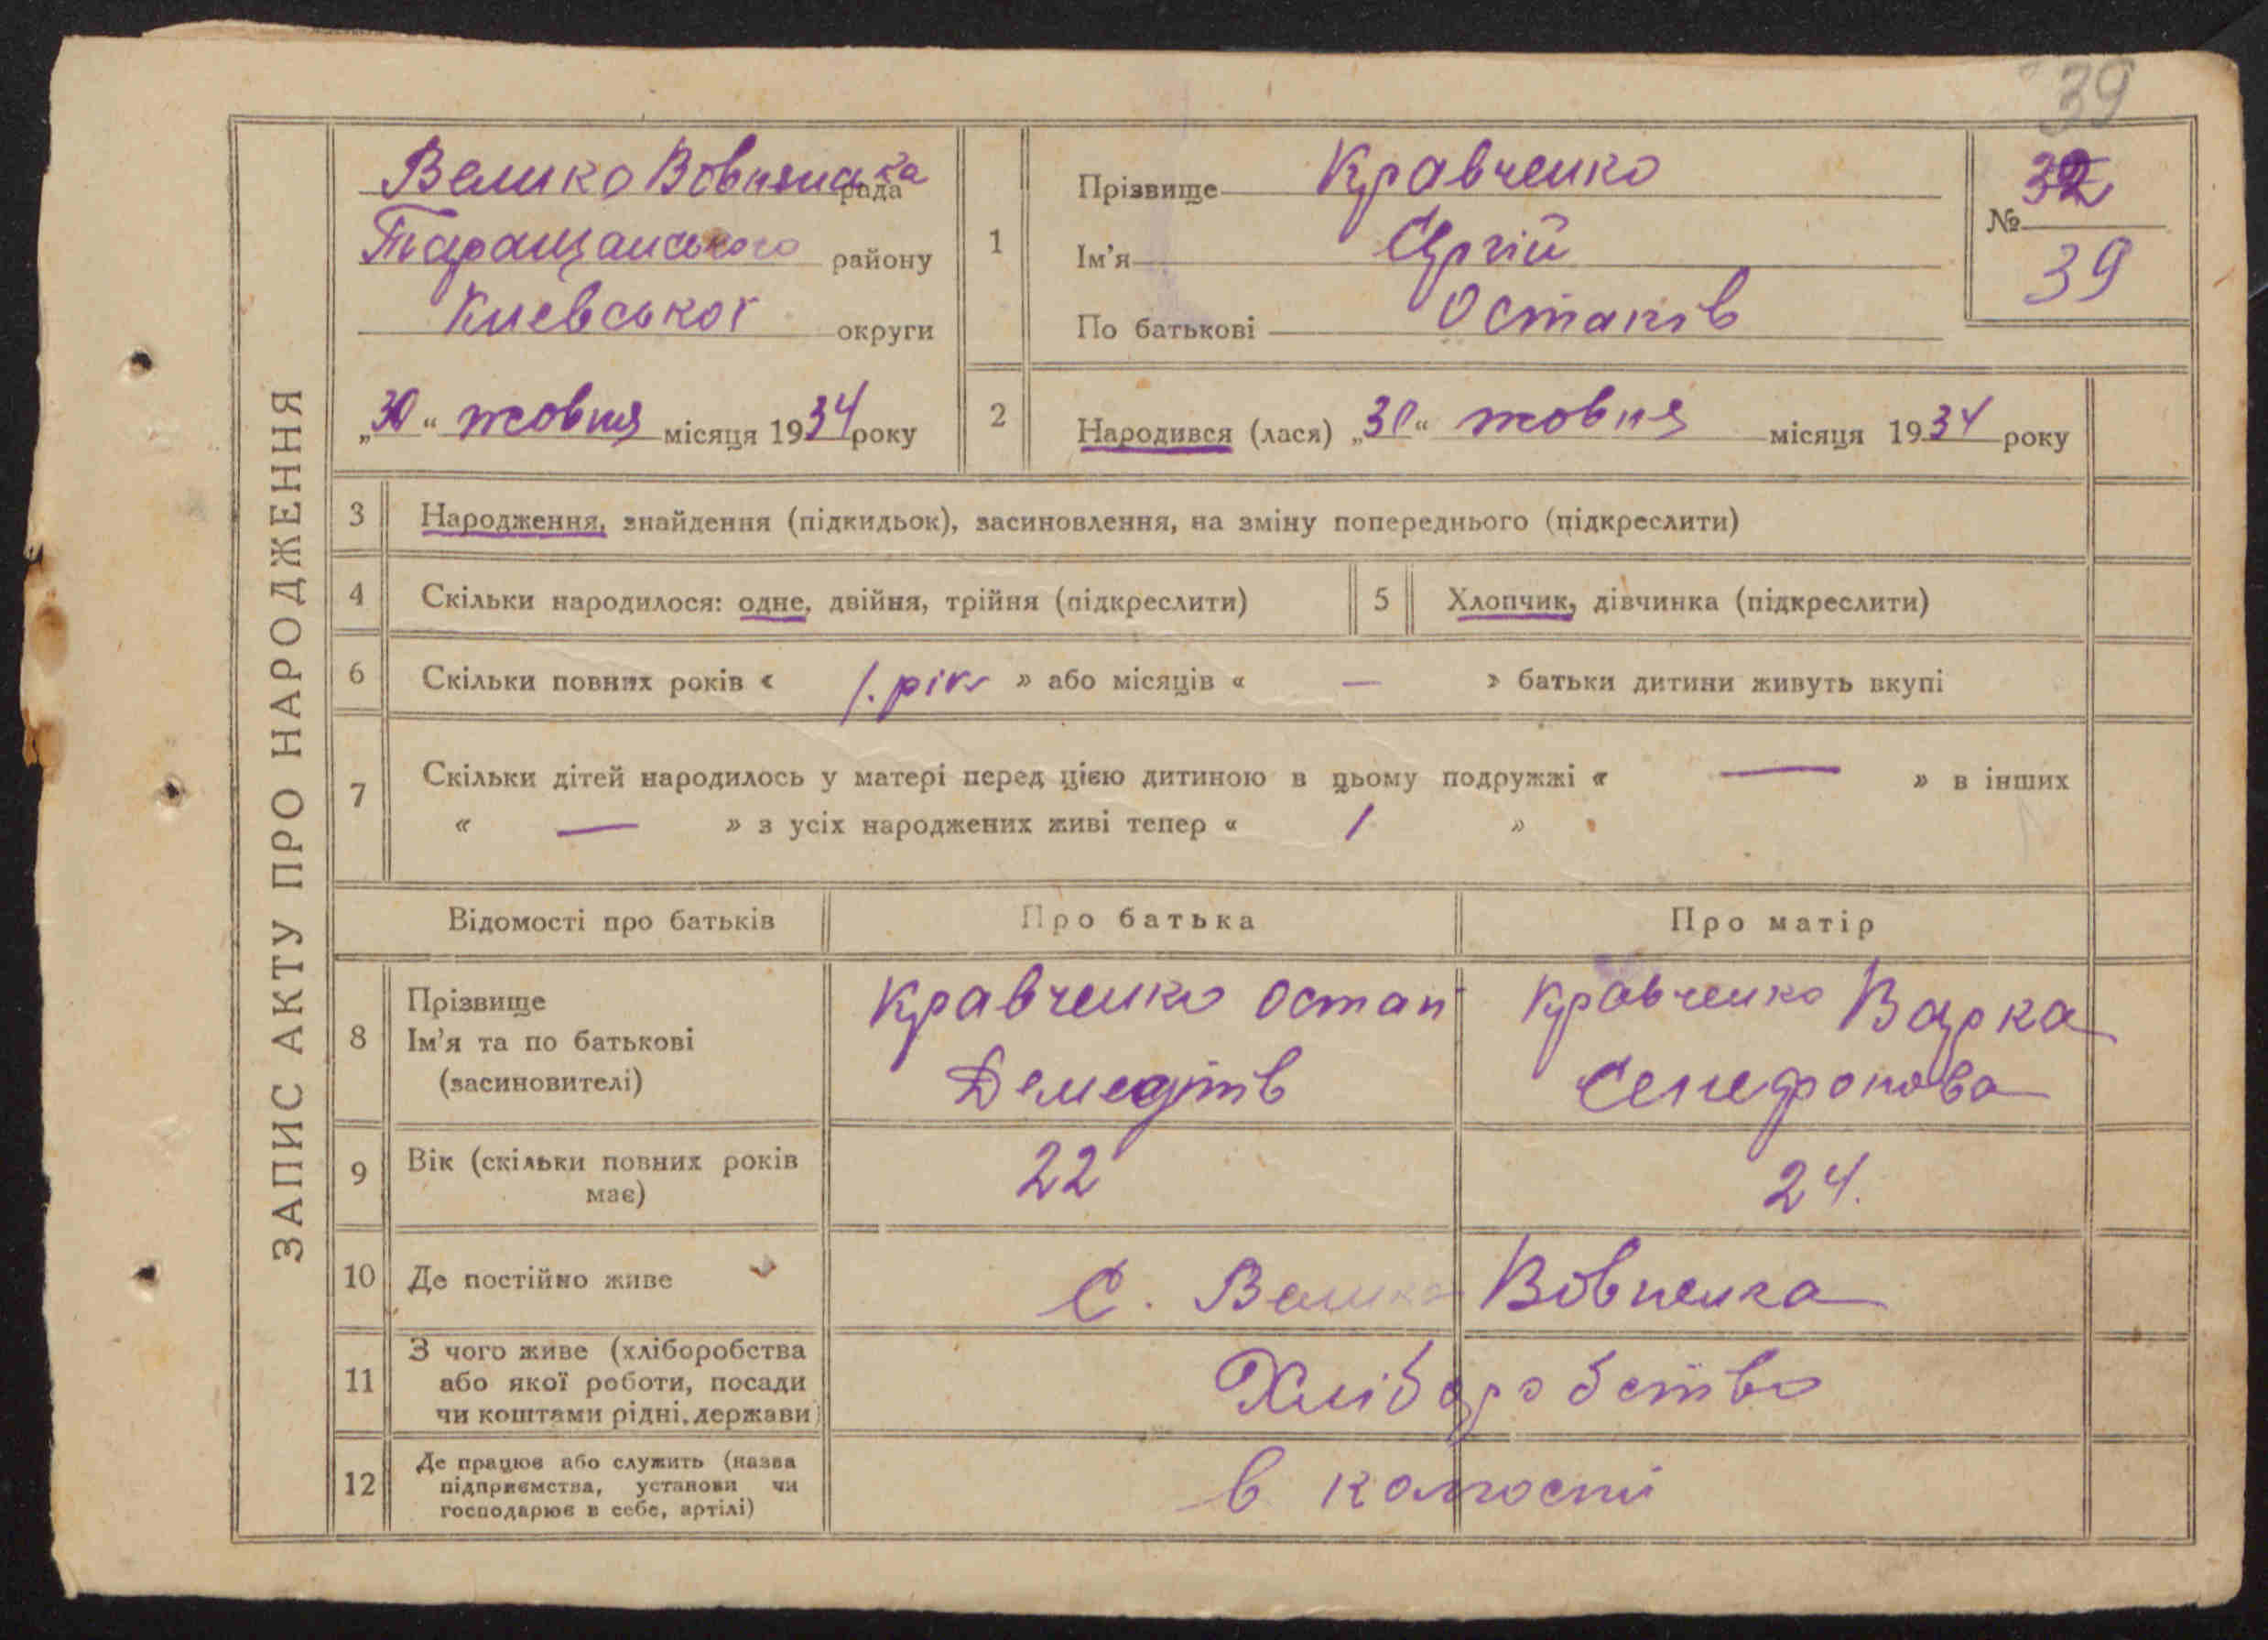 39
ЗАПИС АКТУ ПРО НАРОДЖЕННЯ
Велико Вовнянська рада
Таращанського району
Киевської округи
„30“ жовня місяця 1934 року
1
Прізвище Кравченко
Ім'я Сергій
По батькові Остапів
№ 32
39
2
Народився (лася) „30“ жовня місяця 1934 року
3 Народження, знайдення (підкидьок), засиновлення, на зміну попереднього (підкреслити)
4 Скільки народилося: одне, двійня, трійня (підкреслити)
5 Хлопчик, дівчинка (підкреслити)
6 Скільки повних років « 1. рік » або місяців « — » батьки дитини живуть вкупі
7 Скільки дітей народилось у матері перед цією дитиною в цьому подружжі « — » в інших
« — » з усіх народжених живі тепер « 1 »
Відомості про батьків Про батька Про матір
8
Прізвище
Ім'я та по батькові
(засиновителі)
Кравченко Остап
Кравченко Варка
9 Вік (скільки повних років
має)
22
24.
10 Де постійно живе
с. Велика Вовнянка
11
З чого живе (хліборобства
або якої роботи, посади
чи коштами рідні, держави)
Хліборобство
12
Де працює або служить (назва
підприємства, установи чи
господарює в себе, артілі)
в